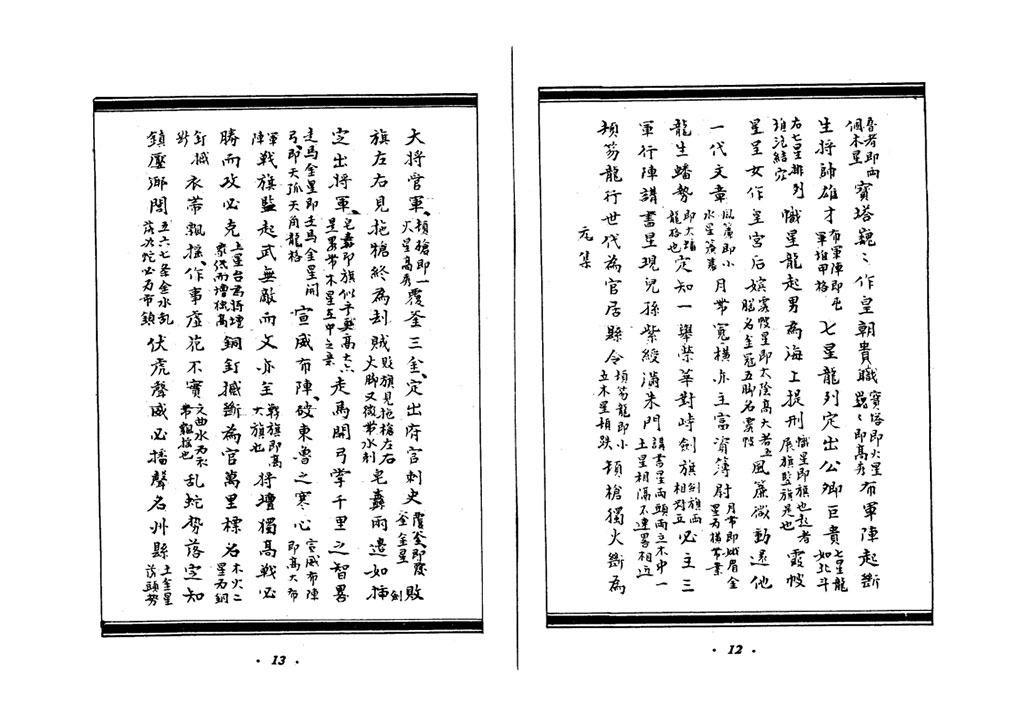 卷者即兩個木星 寶塔巍ミ作皇朝貴職 寶塔即火星巍ミ即高秀 布軍陣起斷
生將帥雄才 布軍陣即屯軍堆甲格 七星龍列定出公卿巨貴 七星龍如北斗
右七星排列 穴 幟星龍起男為海上提刑 幟星即旗也起者展旗監旗是也 霞帔
星呈女作皇宮后嬪 霞帔星即太陰高大者五腦名金冠五脚名霞帔 風簾微動還他
一代文章 風簾即小水星簾幕 月帶寬橫亦主富資簿尉 月帶即娥眉金星為橫帶案
龍生蟠勢 龍格也 定知一舉榮華對峙劍旗 劍旗兩相對立 必主三
軍行陣講書星現兒孫紫綬滿朱門 講書星兩頭兩立木中一土星相隔不連畧相近
頓笏龍行世代為官居縣令 頓笏龍即小立木星頓跌 頓槍獨火斷為
元集
12
大將當軍 頓槍即一火星高秀 覆釜三金定出府官刺史 覆釜即覆釜金星 敗
旗左右見拖槍終為刦賊 敗旗見拖槍左右火脚又微帶水刹 皂纛兩邊如挿 劍
定出將軍 皂纛即旗似乎更高大 走馬開弓掌千里之智畧
走馬金星即走馬金星開弓即天弧天角龍格 宣威布陣破東魯之寒心 宣威布陣即高大布
軍陣 戰旗監起武無敵而文亦全 戰旗即高大旗也 將壇獨高戰必
勝而攻必克 土星台為將壇衆低而壇獨高 銅釘撼斷為官萬里標名 木火二星為銅
釘撼 衣帶飄搖作事虛花不實 文曲水為衣帶飄搖也 亂蛇勢落定知
鎮壓鄉閭 五六七条金水乱落九蛇必為布鎮 伏虎聲威必播聲名州縣 土金星落頭勢
13